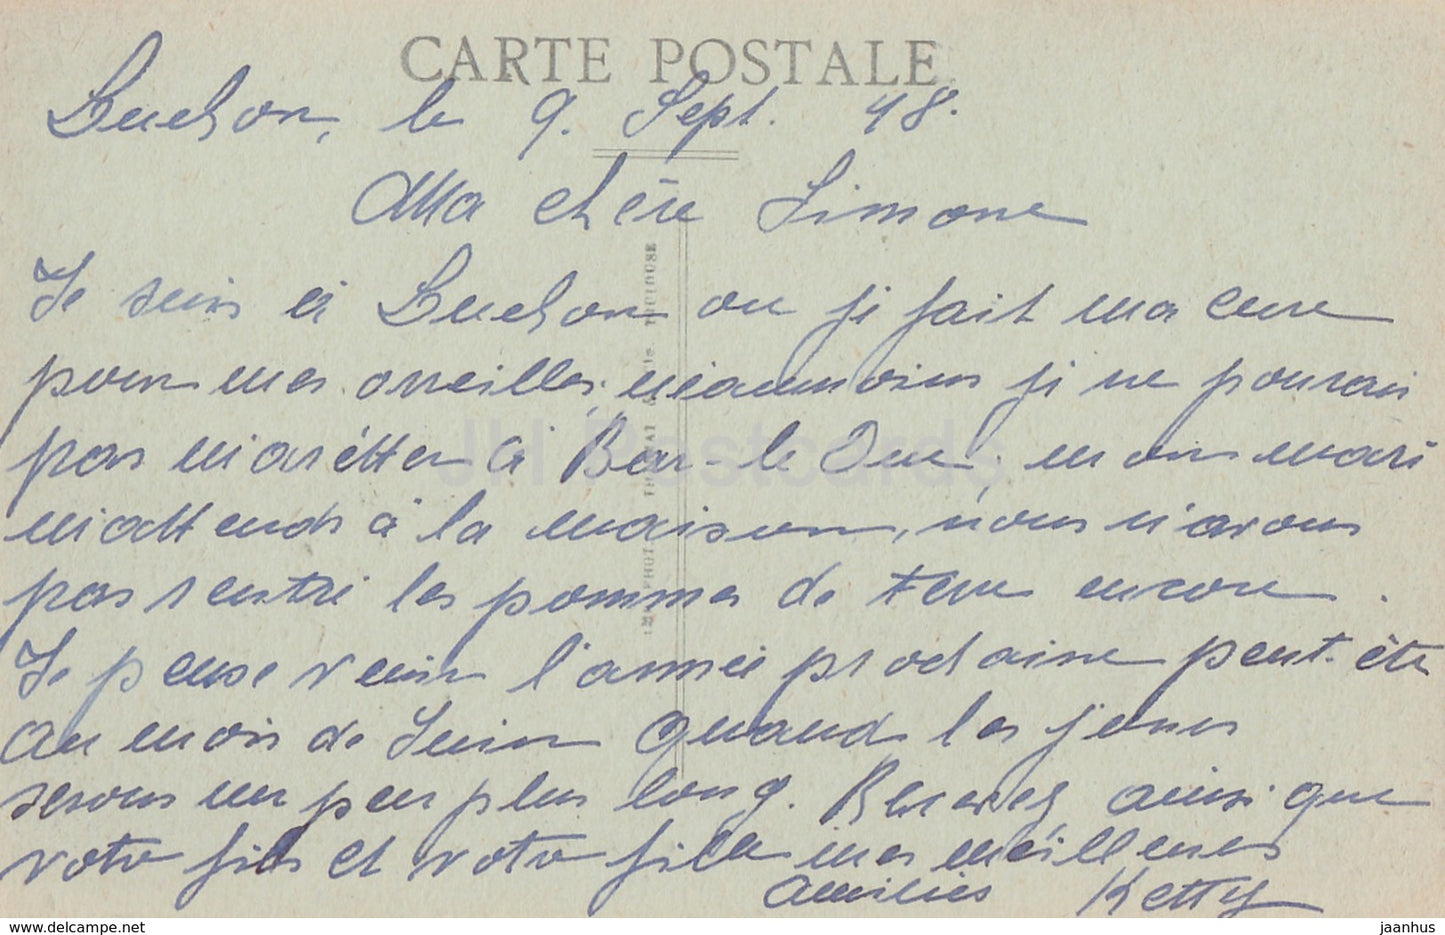 CARTE POSTALE
Luchon, le 9. Sept. 48.
Ma chère Simone
Je suis à Luchon ou je fait ma cure
pour mes oreilles, niaunmoins je ne pourais
pas m'arêtter à Bar-le Duc, mon mari
m'attends à la maison, nous n'avons
pas rentré les pommes de terre encore.
Je pense venir l'année prochaine peut-être
au mois de Juin quand les jours
serons un peu plus long. Recevez ainsi que
votre fils et votre fille mes meilleures
amitiés Ketty
PHOT. TOULOUSE
JH Postcards
https://jhpostcards.com
jaanhus